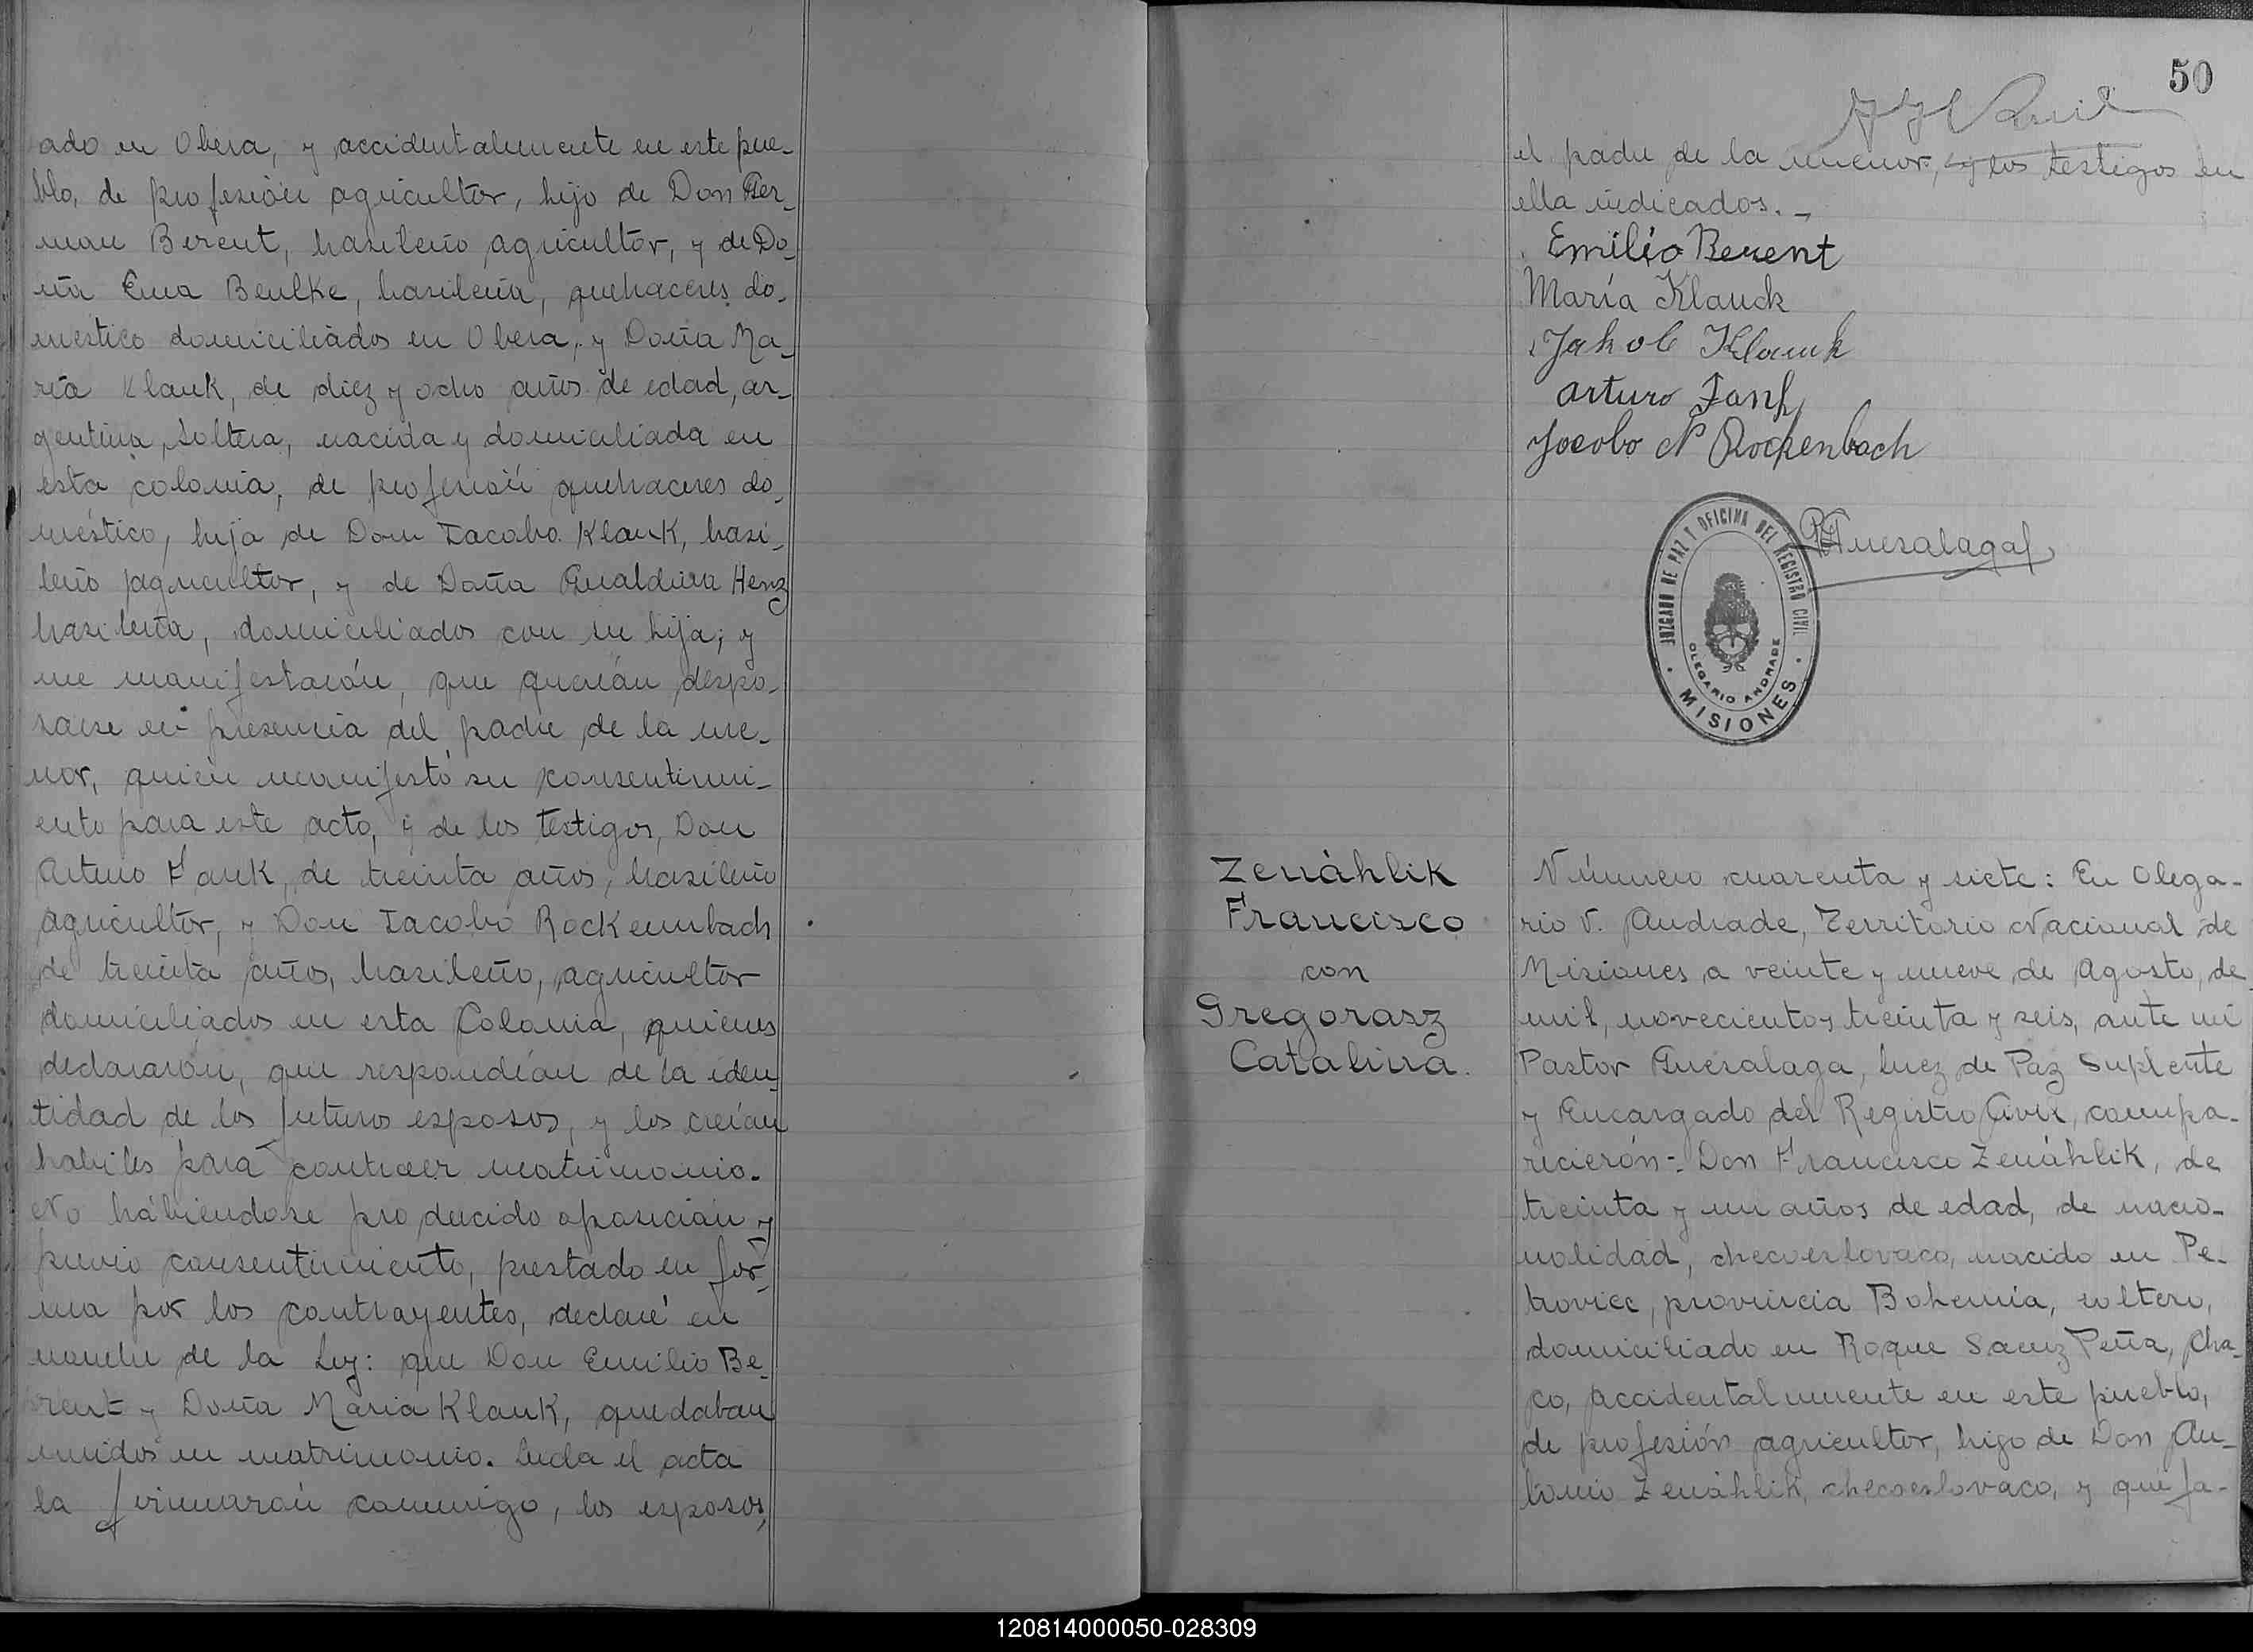 ado en Obera, y accidentalmente en este pue-
blo, de profesión agricultor, hijo de Don Ger-
man Berent, brasileño agricultor, y de Do-
ña Ema Beulke, brasileña, quehaceres do-
mestico domiciliádos en Obera, y Doña Ma-
ría Klauk, de diez y ocho años de edad, ar-
gentina, soltera, nacida y domiciliada en
esta colonia, de profesión quehaceres do-
méstico, hija de Don Jacobo Klauk, brasi-
leño agricultor, y de Doña Gualdina Henz
brasileña, domiciliados con su hija; y
me manifestarón, que querían despo-
sarse en presencia del padre de la me-
nor, quién manifestó su consentimi-
ento para este acto, y de los testigos, Don
Arturo Fank, de treinta años, brasileño
agricultor, y Don Jacobo Rockembach
de treinta años, brasileño, agricultor
domiciliados en esta Colonia, quienes
declararón, que respondían de la iden-
tidad de los futuros esposos, y los creían
habiles para contraer matrimonio.
No hábiendose producido oposición y
previo consentimiento, prestado en for-
ma por los contrayentes, declaré en
nombre de la Ley: que Don Emilio Be-
rent y Doña Maria Klauk, quedaban
unidos en matrimonio. Leida el acta
la firmarón conmigo, los esposos,
50
el padre de la menor, y los testigos en
ella indicados.-
Emilio Berent
María Klauck
Jakob Klauck
Arturo Fank
Jocobo N Rockenbach
JUZGADO DE PAZ Y OFICINA DEL REGISTRO CIVIL
OLEGARIO ANDRADE
MISIONES
PGuesalaga
Zenáhlik
Francisco
con
Gregorasz
Catalina.
Número cuarenta y siete: En Olega-
rio V. Andrade, Territorio Nacional de
Misiones a veinte y nueve de Agosto, de
mil, novecientos treinta y seis, ante mí
Pastor Guesalaga, Juez de Paz Suplente
y Encargado del Registro Civil, compa-
recierón:- Don Francisco Zenáhlik, de
treinta y un años de edad, de nacio-
nalidad, checoeslovaco, nacido en Pe-
trovice, provincia Bohemia, soltero,
domiciliado en Roque Saenz Peña, Cha-
co, accidentalmente en este pueblo,
de profesión agricultor, hijo de Don An-
tonio Zenáhlik, checoeslovaco, y que fa-
120814000050-028309